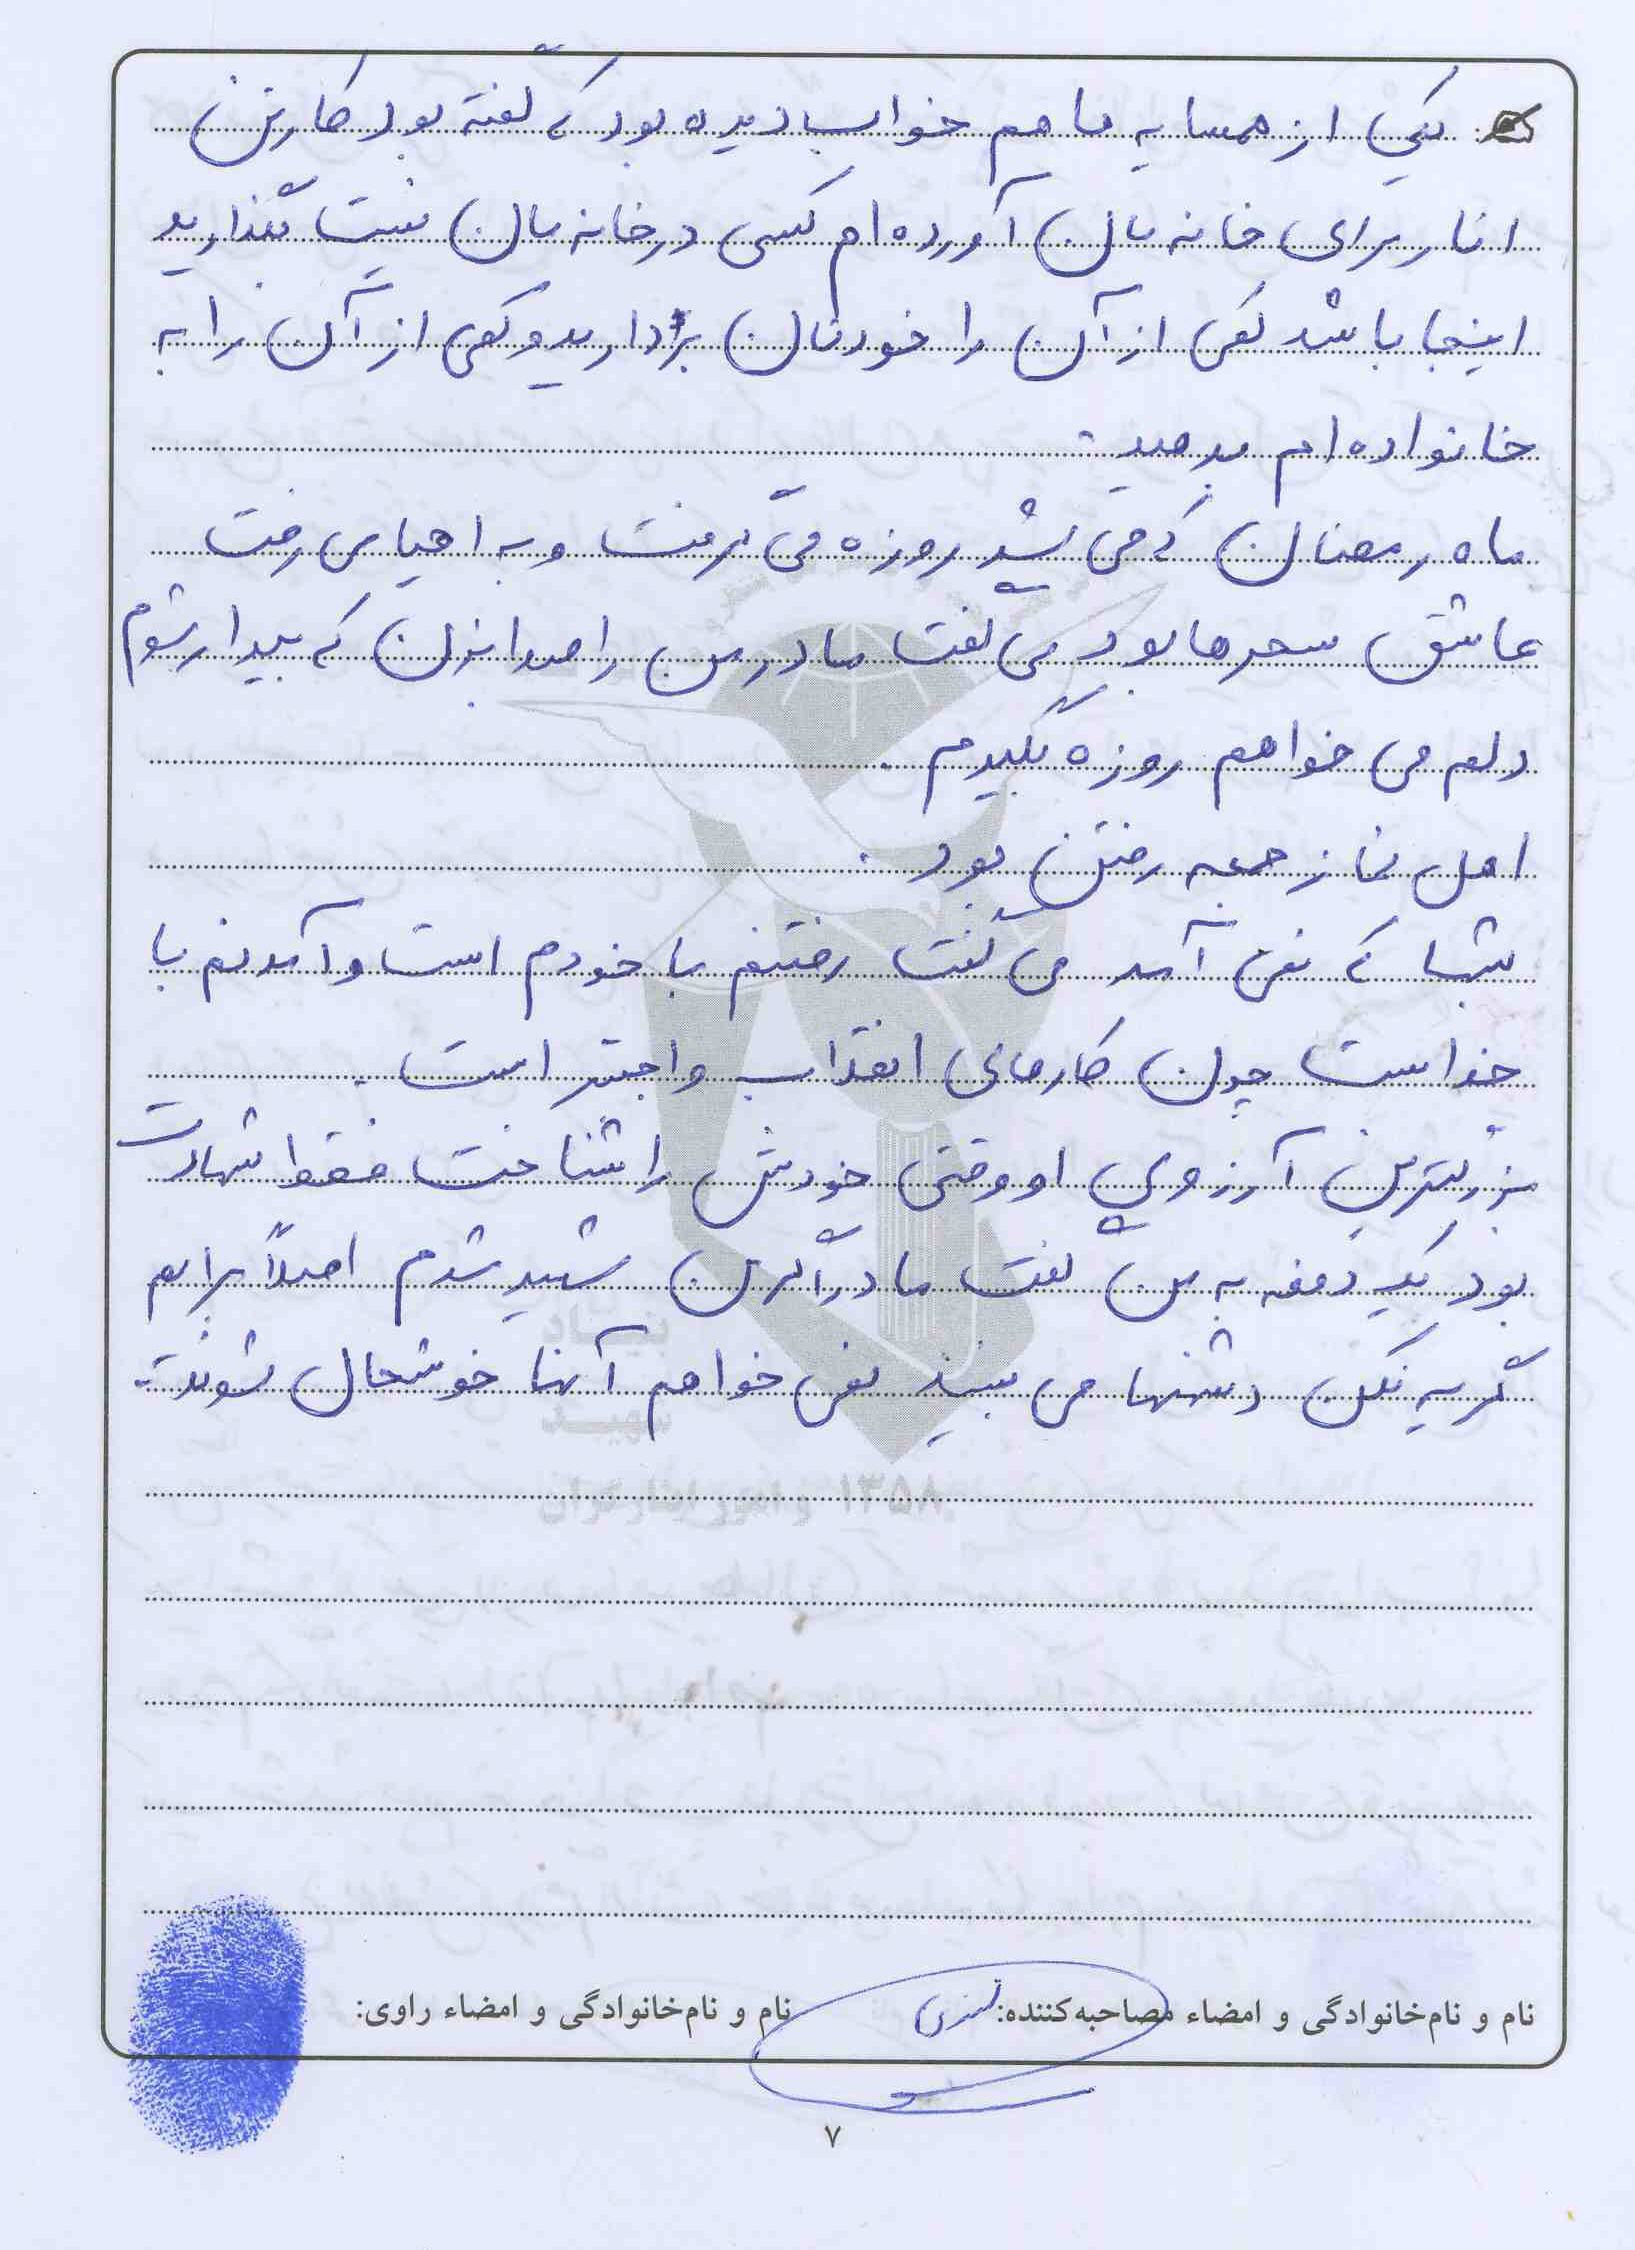 یکی از همسایه ما هم خواب دیده بود که گفته بود کارتن
انار برای خانه مان آورده ام کسی در خانه مان نیست بگذارید
اینجا باشد نصفی از آن را خودتان بردارید و کمی از آن را به
خانواده ام بدهید.
ماه رمضان که می شد روزه می گرفت و به احیا می رفت
عاشق سحرها بود می گفت مادر من را صدا بزن که بیدار شوم
دلم می خواهم روزه بگیرم.
اهل نماز جمعه رفتن بود.
شبها که نمی آمد می گفت رفتنم با خودم است و آمدنم با
خداست چون کارهای انقلاب واجبتر است.
بزرگترین آرزوی او وقتی خودش را شناخت فقط شهادت
بود یک دفعه به من گفت مادر اگر من شهید شدم اصلاً برایم
گریه نکن دشنها می بینند نمی خواهم آنها خوشحال شوند.
بنیاد
شهید
و امور ایثارگران ۱۳۵۸
نام و نام‌خانوادگی و امضاء مصاحبه‌کننده:
نام و نام‌خانوادگی و امضاء راوی:
۷